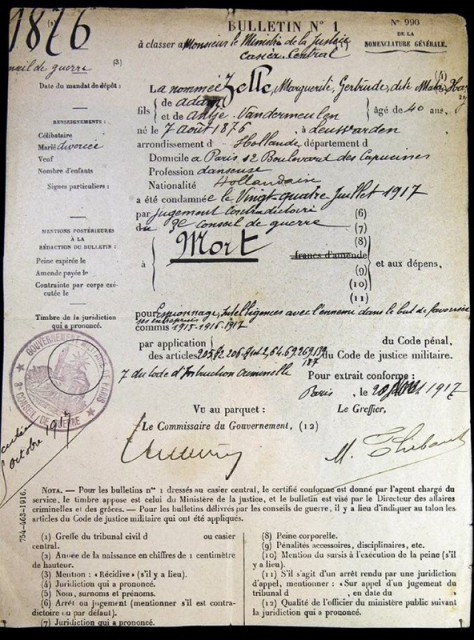 1876
(1)
BULLETIN N° 1
N° 990
DE LA
NOMENCLATURE GÉNÉRALE.
à classer à Monsieur le Ministre de la Justice
Casier Central
conseil de guerre (3)
Date du mandat de dépôt :
RENSEIGNEMENTS :
Célibataire
Marié divorcée
Veuf
Nombre d'enfants
Signes particuliers :
MENTIONS POSTÉRIEURES
À LA
RÉDACTION DU BULLETIN :
Peine expirée le
Amende payée le
Contrainte par corps exé-
cutée le
Timbre de la juridiction
qui a prononcé.
La nommée Zelle, Marguerite, Gertrude, dite Mata Hari (5)
fils de Adam
et de Antje Vandermeulen âgé de 40 ans
né le 7 août 1876 à Leuwarden
arrondissement d Hollande, département d
Domicile à Paris 12 Boulevard des Capucines
Profession danseuse
Nationalité Hollandain
a été condamnée le Vingt quatre Juillet 1917
par Jugement Contradictoire (6)
du 3e Conseil de guerre (7)
à Mort (8)
francs d'amende
(9)
et aux dépens,
(10)
(11)
pour Espionnage, Intelligences avec l'ennemi dans le but de favoriser
ses entreprises
commis 1915-1916-1917
par application du Code pénal,
des articles du Code de justice militaire.
7 du Code d'Instruction Criminelle
Pour extrait conforme :
Paris, le 1917
Vu au parquet : Le Greffier,
Le Commissaire du Gouvernement, (12)
GOUVERNEMENT MILITAIRE DE PARIS
3e CONSEIL DE GUERRE
octobre 1917
754-463-1916.
NOTA. — Pour les bulletins n° 1 dressés au casier central, le certifié conforme est donné par l'agent chargé du
service, le timbre apposé est celui du Ministère de la justice, et le bulletin est visé par le Directeur des affaires
criminelles et des grâces. — Pour les bulletins délivrés par les conseils de guerre, il y a lieu d'indiquer au talon les
articles du Code de justice militaire qui ont été appliqués.
(1) Greffe du tribunal civil d ou casier
central.
(2) Année de la naissance en chiffres de 1 centimètre
de hauteur.
(3) Mention : «Récidive» (s'il y a lieu).
(4) Juridiction qui a prononcé.
(5) Nom, surnoms et prénoms.
(6) Arrêt ou jugement (mentionner s'il est contra-
dictoire ou par défaut).
(7) Juridiction qui a prononcé.
(8) Peine corporelle.
(9) Pénalités accessoires, disciplinaires, etc.
(10) Mention du sursis à l'exécution de la peine (s'il
y a lieu).
(11) S'il s'agit d'un arrêt rendu par une juridiction
d'appel, mentionner : «Sur appel d'un jugement du
tribunal d , en date du »
(12) Qualité de l'officier du ministère public suivant
la juridiction.